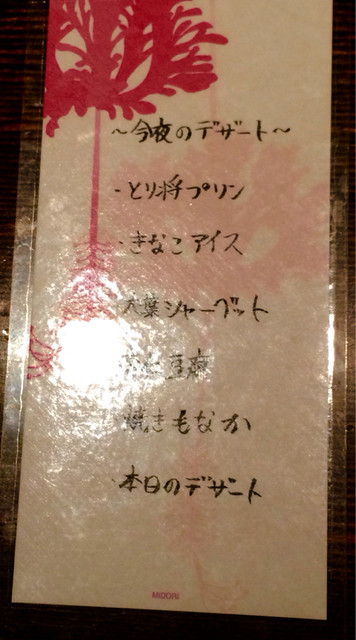 ～今夜のデザート～
・とり将プリン
・きなこアイス
大葉シャーベット
豆腐
焼きもなか
・本日のデザート
MIDORI